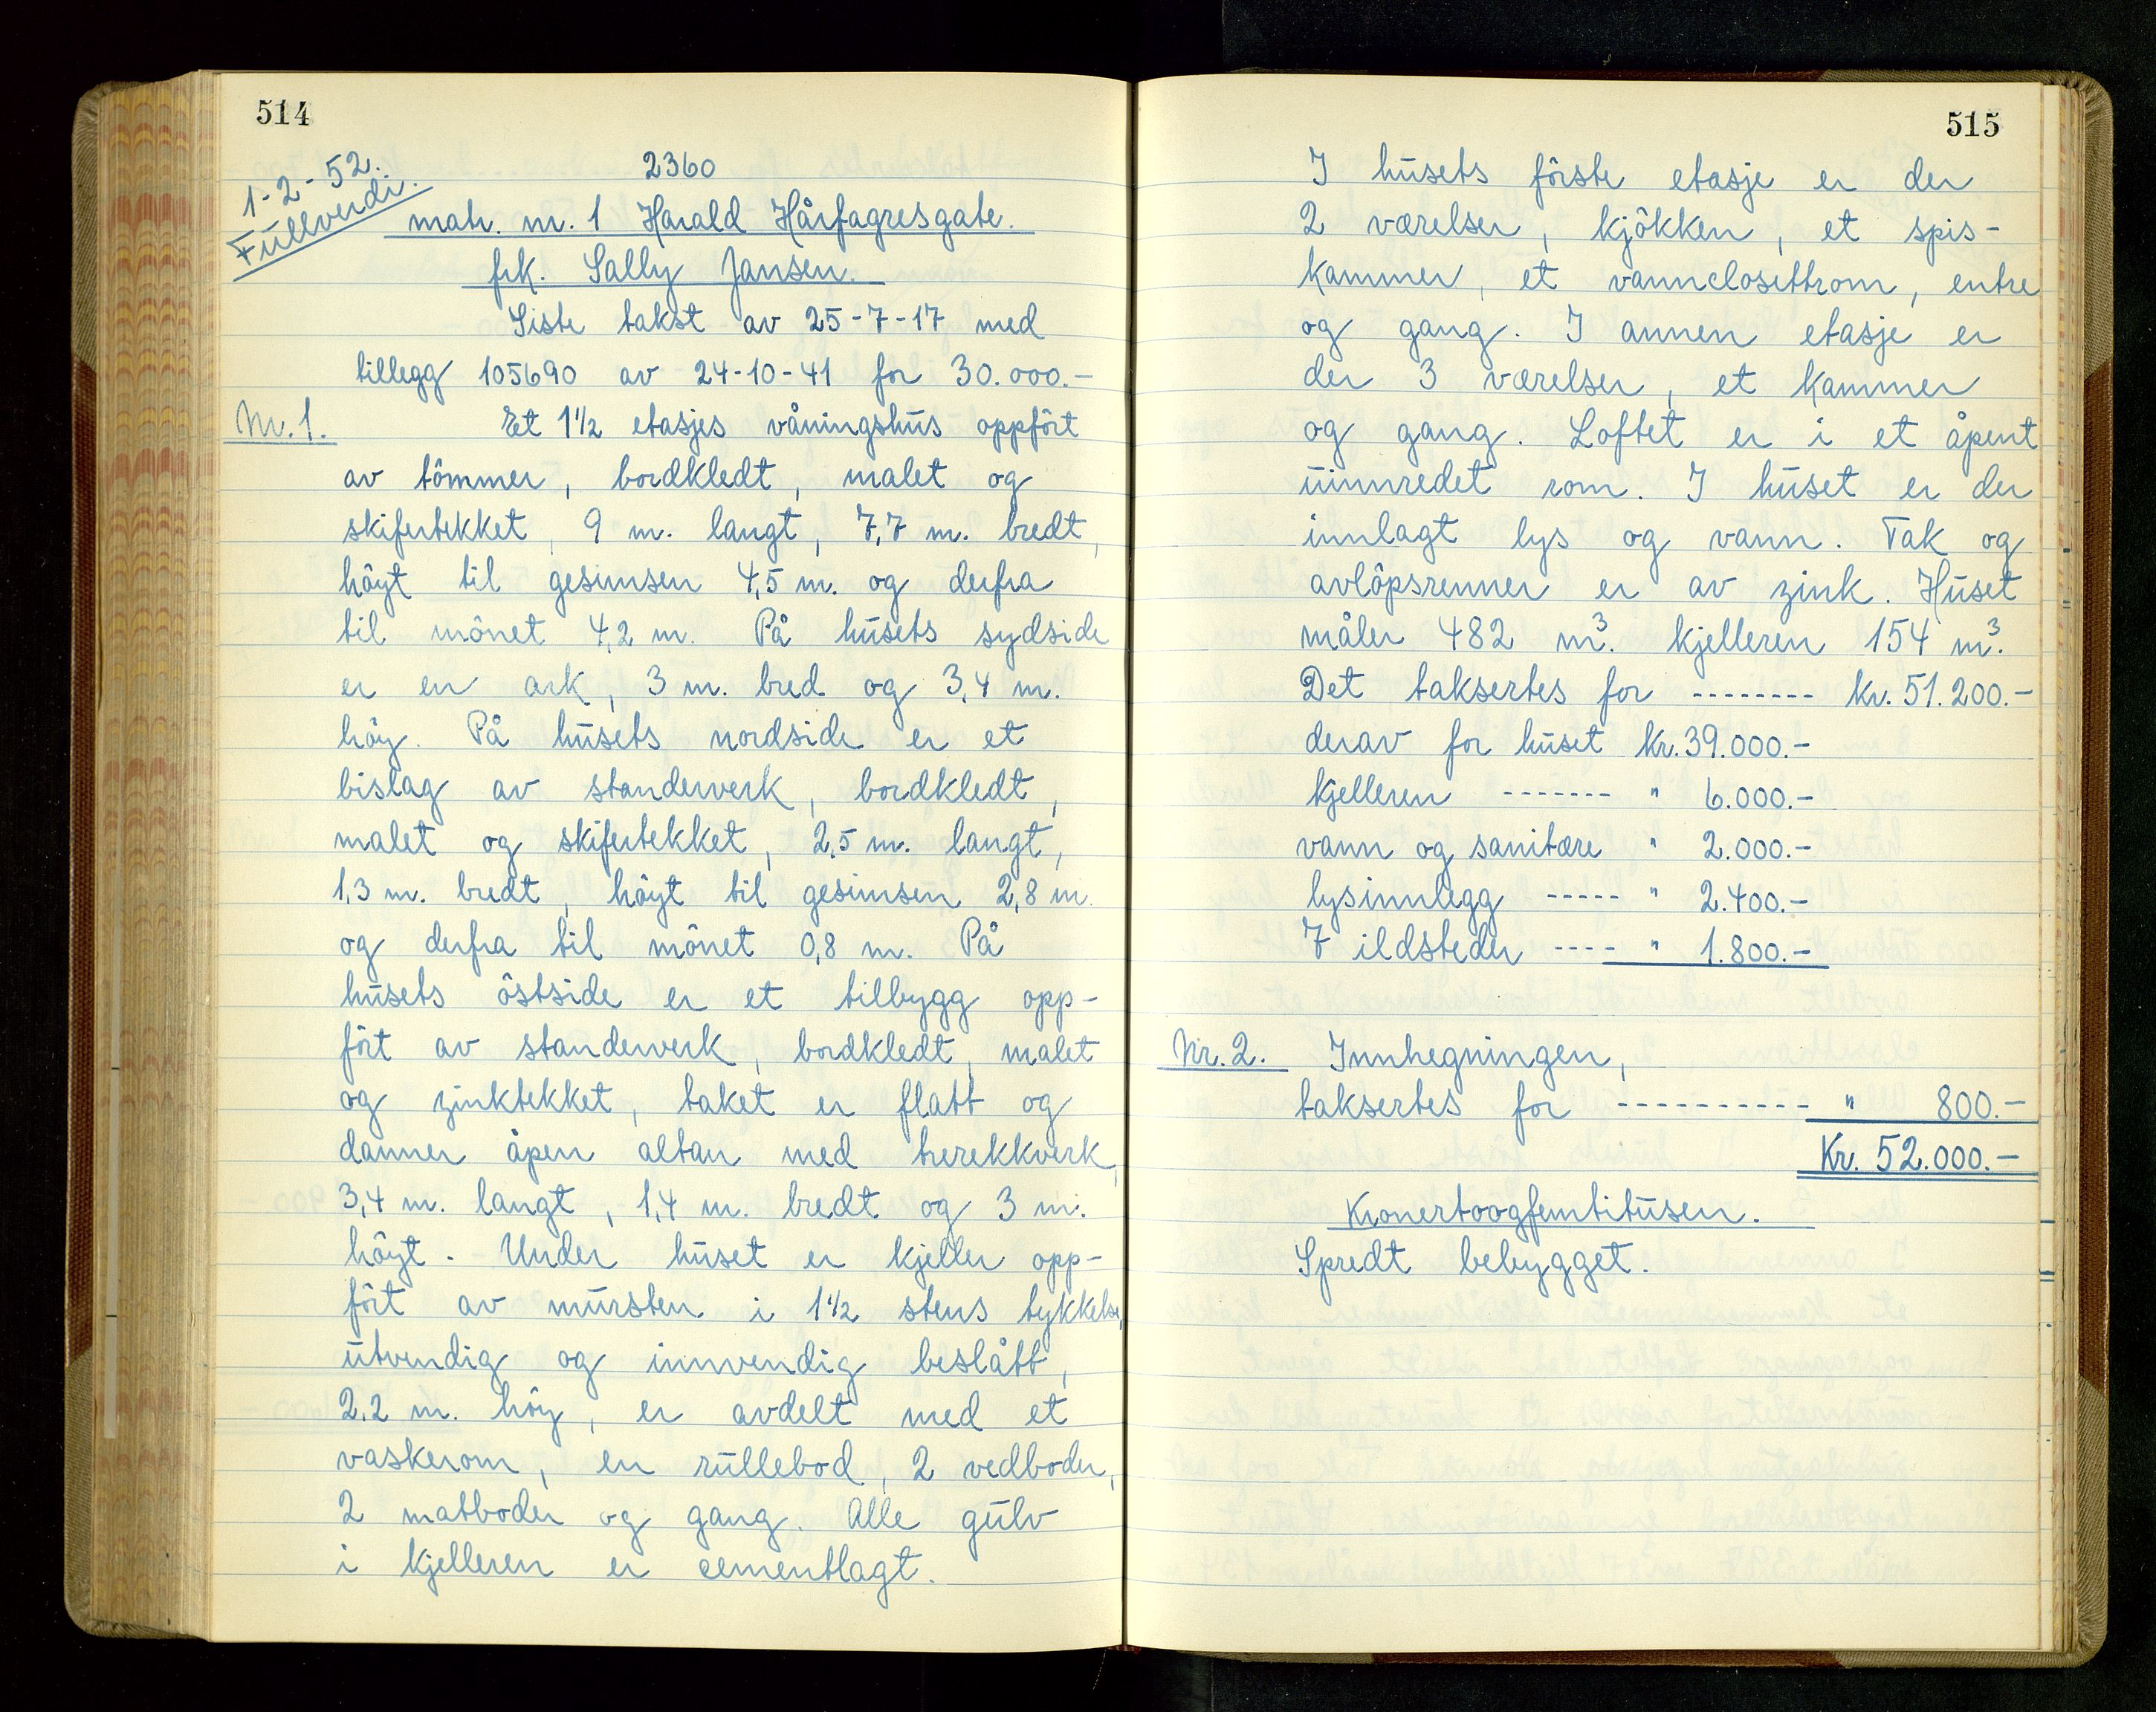 514
1-2-52.
Fullverdi.
2360
matr. nr. 1 Harald Hårfagresgate.
frk. Sally Jansen.
Siste takst av 25-7-17 med
tillegg 105690 av 24-10-41 for 30.000.-
Nr. 1. Et 1½ etasjes våningshus oppført
av tømmer, bordkledt, malet og
skifertekket, 9 m. langt, 7,7 m. bredt,
høyt til gesimsen 4,5 m. og derfra
til mønet 4,2 m. På husets sydside
er en ark, 3 m. bred og 3,4 m.
høy. På husets nordside er et
bislag av standerverk, bordkledt,
malet og skifertekket, 2,5 m. langt,
1,3 m. bredt, høyt til gesimsen 2,8 m.
og derfra til mønet 0,8 m. På
husets østside er et tilbygg opp-
ført av standerverk, bordkledt, malet
og zinktekket, taket er flatt og
danner åpen altan med trerekkverk,
3,4 m. langt, 1,4 m. bredt og 3 m.
høyt. Under huset er kjeller opp-
ført av mursten i 1½ stens tykkelse,
utvendig og innvendig beslått,
2,2 m. høy, er avdelt med et
vaskerom, en rullebod, 2 vedboder,
2 matboder og gang. Alle gulv
i kjelleren er cementlagt.
515
I husets første etasje er der
2 værelser, kjøkken, et spis-
kammer, et vannclosettrom, entre
og gang. I annen etasje er
der 3 værelser, et kammer
og gang. Loftet er i et åpent
uinnredet rom. I huset er der
innlagt lys og vann. Tak og
avløpsrenner er av zink. Huset
måler 482 m³. kjelleren 154 m³.
Det taksertes for -------- kr. 51.200.-
derav for huset kr. 39.000.-
kjelleren ------- " 6.000.-
vann og sanitære " 2.000.-
lysinnlegg ----- " 2.400.-
7 ildsteder ---- " 1.800.-
Nr. 2. Innhegningen,
taksertes for ---------- " 800.-
Kr. 52.000.-
Kronertoogfemtitusen.
Spredt bebygget.